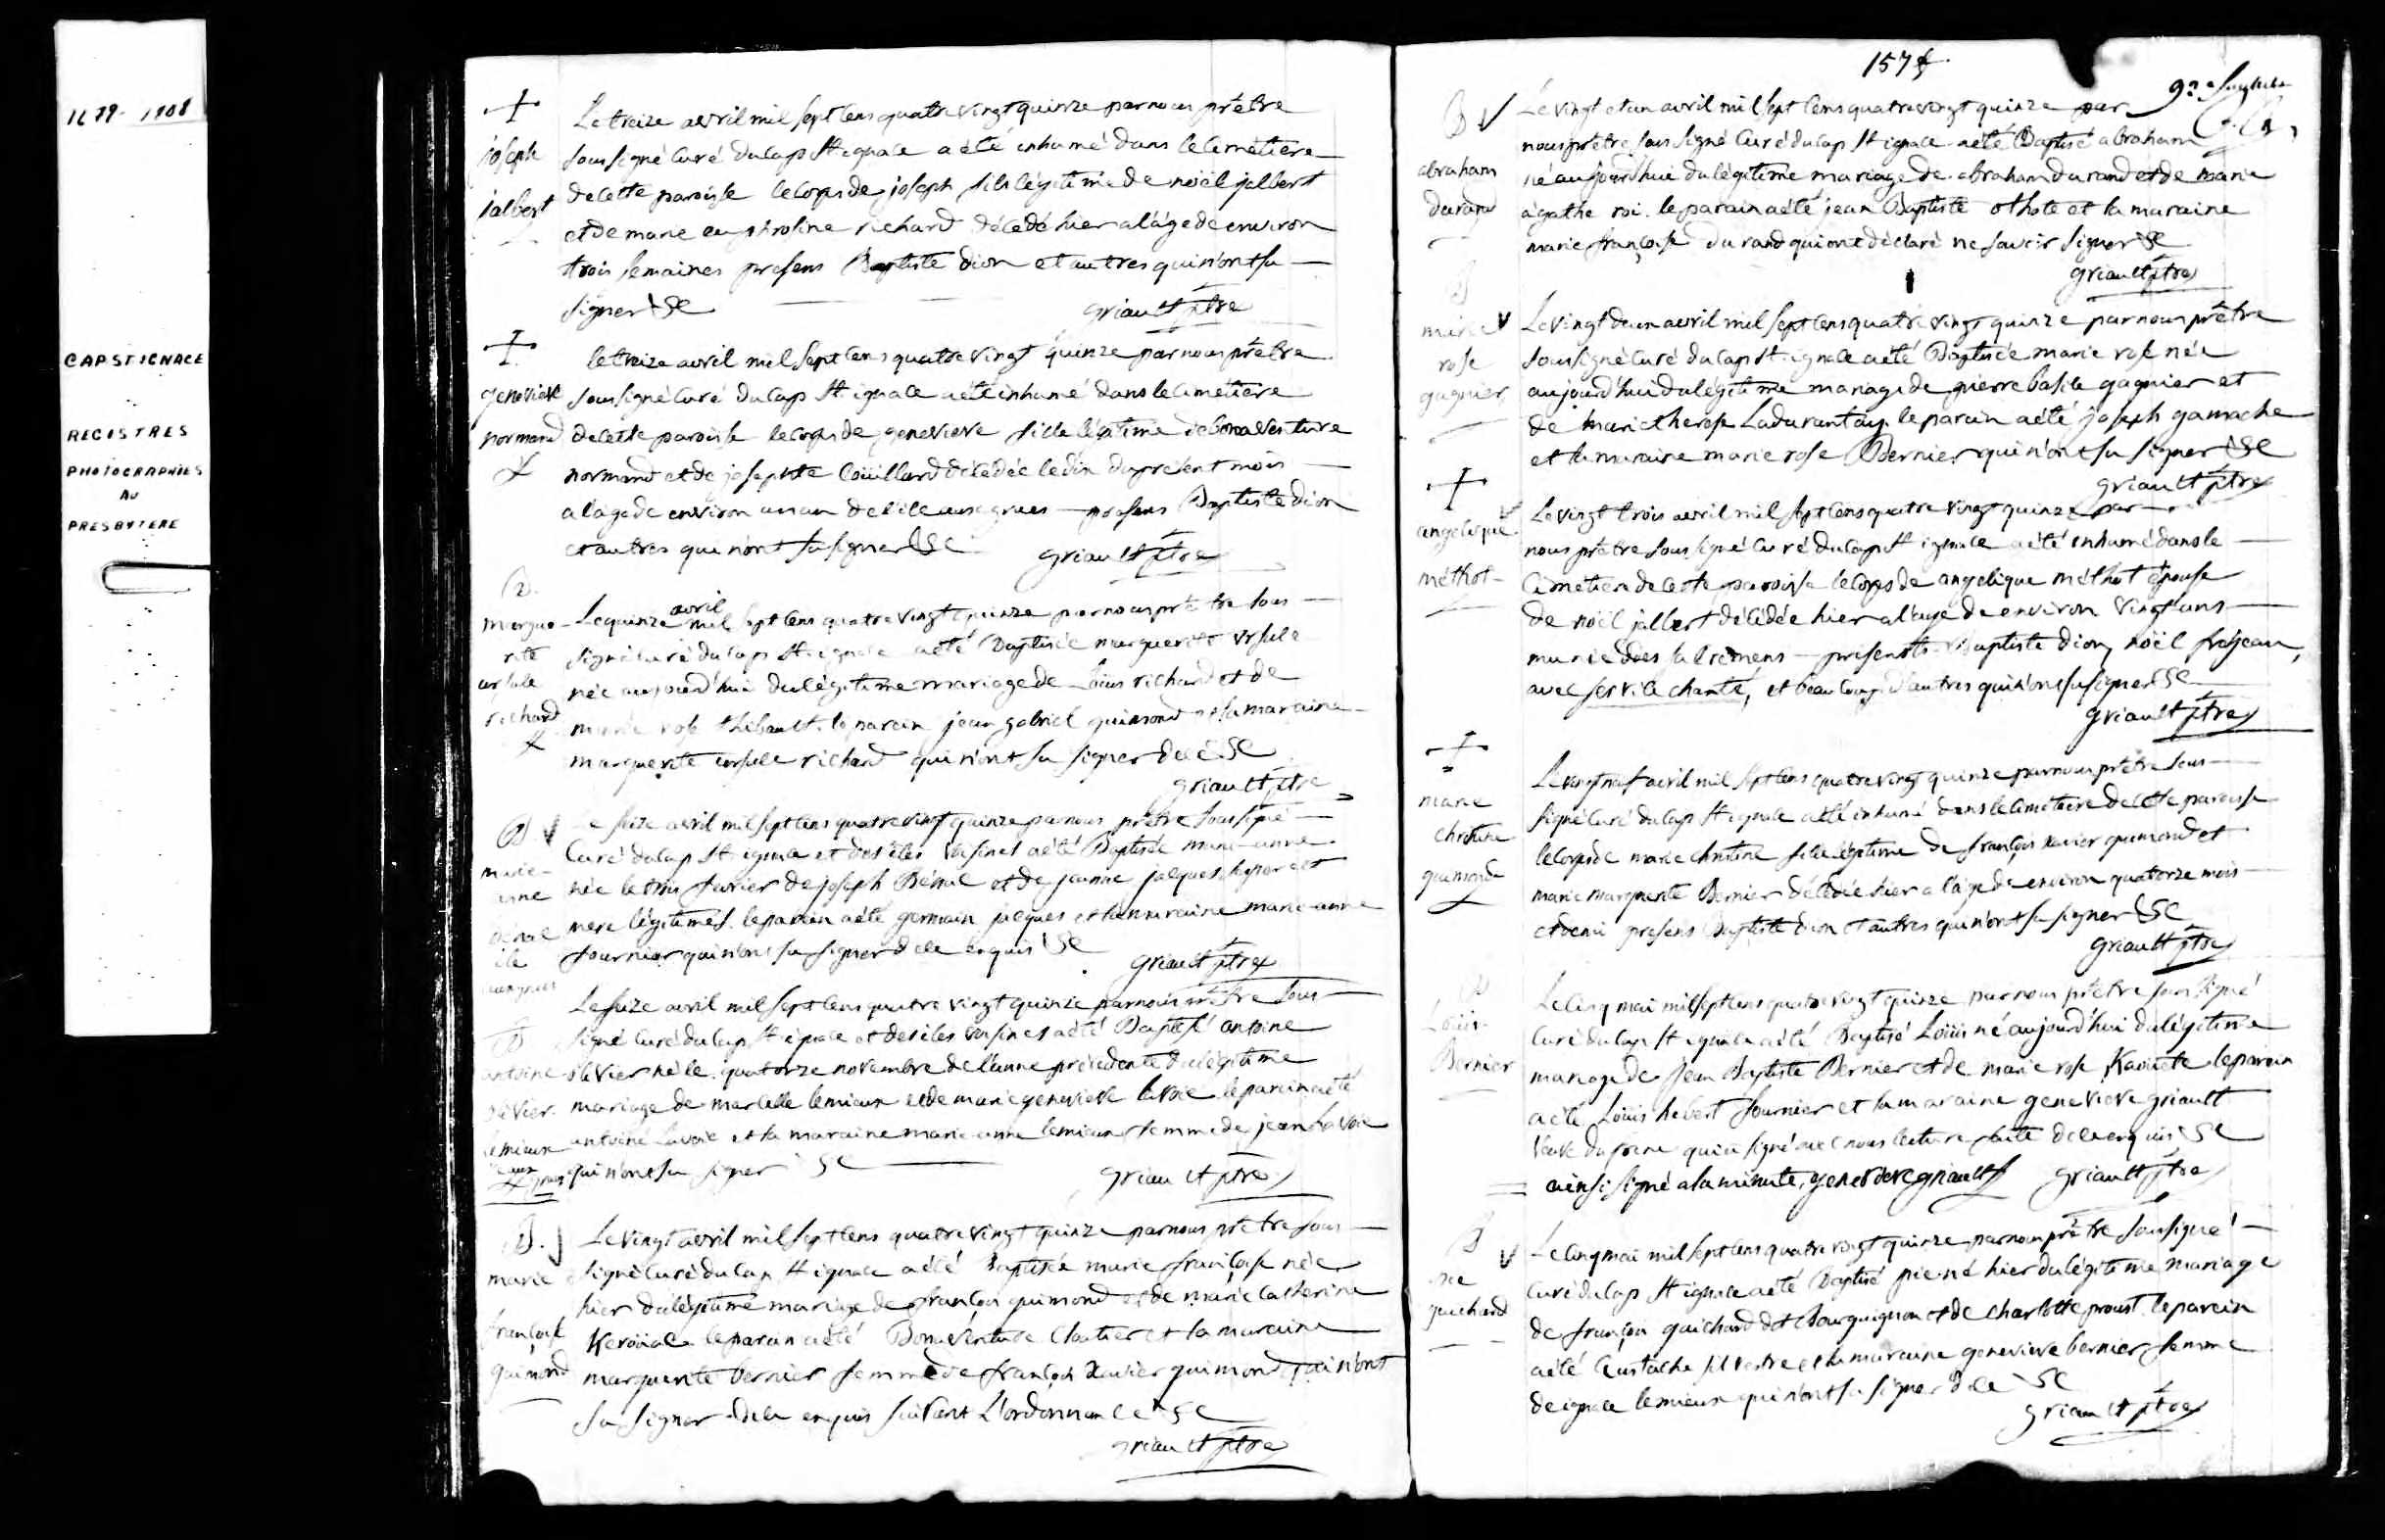 1679-1908
CAP ST IGNACE
REGISTRES
PHOTOGRAPHIES
AU
PRESBYTERE
joseph
jalbert
Le treize avril mil sept cens quatre vingt quinze par nous prêtre
soussigné curé du cap St ignace a été inhumé dans le cimetiere
de cette paroisse le corps de joseph fils légitime de noël jalbert
et de marie richard décédé hier a l'âge de environ
trois semaines presens Baptiste dion et autres qui n'ont su
signer &c
griault ptre
genevieve
normand
le treize avril mil sept cens quatre vingt quinze par nous prêtre
soussigné curé du cap St ignace a été inhumé dans le cimetiere
de cette paroisse le corps de genevieve fille légitime de bonaventure
normand et de josephte Coüillard décédée le dix du présent mois
a l'age de environ un an de l'ile aux grues presens Baptiste dion
et autres qui n'ont su signer &c
griault ptre
B.
margue-
rite
ursule
richard
Le quinze avril mil sept cens quatre vingt quinze par nous prêtre sous
signé curé du cap St ignace a été Baptisée marguerite ursule
née aujourd'hui du légitime mariage de Loüis richard et de
marie rose thibault. le parain jean gabriel guimond et la maraine
marguerite ursule richard qui n'ont su signer de ce &c
griault ptre
B
marie-
anne
ile
aux grues
Le seize avril mil sept cens quatre vingt quinze par nous prêtre soussigné
Curé du cap St ignace et des iles voisines a été Baptisée marie-anne
née le trois fevrier de joseph et de jeanne jacques ses pere et
mere légitimes. le parain a été germain jacques et la maraine marie-anne
fournier qui n'ont su signer de ce enquis &c
griault ptre
B
antoine
olivier
lemieux
aux
grues
Le seize avril mil sept cens quatre vingt quinze par nous prêtre sous
signé curé du cap St ignace et des iles voisines a été Baptisé antoine
olivier né le quatorze novembre de l'anne précédente du légitime
mariage de marcelle lemieux et de marie genevieve lavoie le parain a été
antoine Lavoie et la maraine marie anne lemieux femme de jean Lavoie
qui n'ont su signer &c
griault ptre
B.
marie
françoise
guimond
Le vingt avril mil sept cens quatre vingt quinze par nous prêtre sous
signé curé du cap St ignace a été Baptisée marie françoise née
hier du légitime mariage de françois guimond et de marie catherine
Keroüac le parain a été Bonaventure Cloutier et la maraine
marguerite bernier femme de françois Xavier guimond qui n'ont
su signer de ce enquis suivant L'ordonnance &c
griault ptre
157
B
abraham
durand
Le vingt et un avril mil sept cens quatre vingt quinze par
nous prêtre sous signé curé du cap St ignace a été Baptisé abraham
né aujourd'hui du légitime mariage de abraham durand et de marie
agathe roi. le parain a été jean Baptiste othote et la maraine
marie françoise durand qui ont déclaré ne savoir signer &c
griault ptre
B
marie
rose
gagnier
Le vingt deux avril mil sept cens quatre vingt quinze par nous prêtre
soussigné curé du cap St ignace a été Baptisée marie rose née
aujourd'hui du légitime mariage de pierre basile gagnier et
de marie therese Ladurantay. le parain a été joseph gamache
et la maraine marie rose Bernier qui n'ont su signer &c
griault ptre
angelique
méthot
Le vingt trois avril mil sept cens quatre vingt quinze par
nous prêtre sous signé curé du cap St ignace a été inhumé dans le
cimetiere de cette paroisse le corps de angelique méthot épouse
de noël jalbert décédée hier a l'age de environ vingt ans
munie des sacremens presents Baptiste dion, noël
avec service chanté, et beaucoup d'autres qui n'ont su signer &c
griault ptre
marie
christine
guimond
Le vingt neuf avril mil sept cens quatre vingt quinze par nous prêtre sous
signé curé du cap St ignace a été inhumé dans le cimetiere de cette paroisse
le corps de marie christine fille légitime de françois xavier guimond et
marie marguerite Bernier décédée hier a l'age de environ quatorze mois
et demi presens Baptiste dion et autres qui n'ont su signer &c
griault ptre
B
Loüis
Bernier
Le cinq mai mil sept cens quatre vingt quinze par nous prêtre sous signé
curé du cap St ignace a été Baptisé Loüis né aujourd'hui du légitime
mariage de jean Baptiste Bernier et de marie rose le parain
a été Loüis hebert fournier et la maraine genevieve griault
veuve qui a signé avec nous lecture faite de ce enquis &c
ainsi signé a la minute, genevieve griault griault ptre
B
guichard
Le cinq mai mil sept cens quatre vingt quinze par nous prêtre soussigné
curé du cap St ignace a été Baptisé né hier du légitime mariage
de françois guichard dit bourguignon et de charlotte proust. le parain
a été Eustache silvestre et la maraine genevieve bernier femme
de ignace lemieux qui n'ont su signer de ce &c
griault ptre